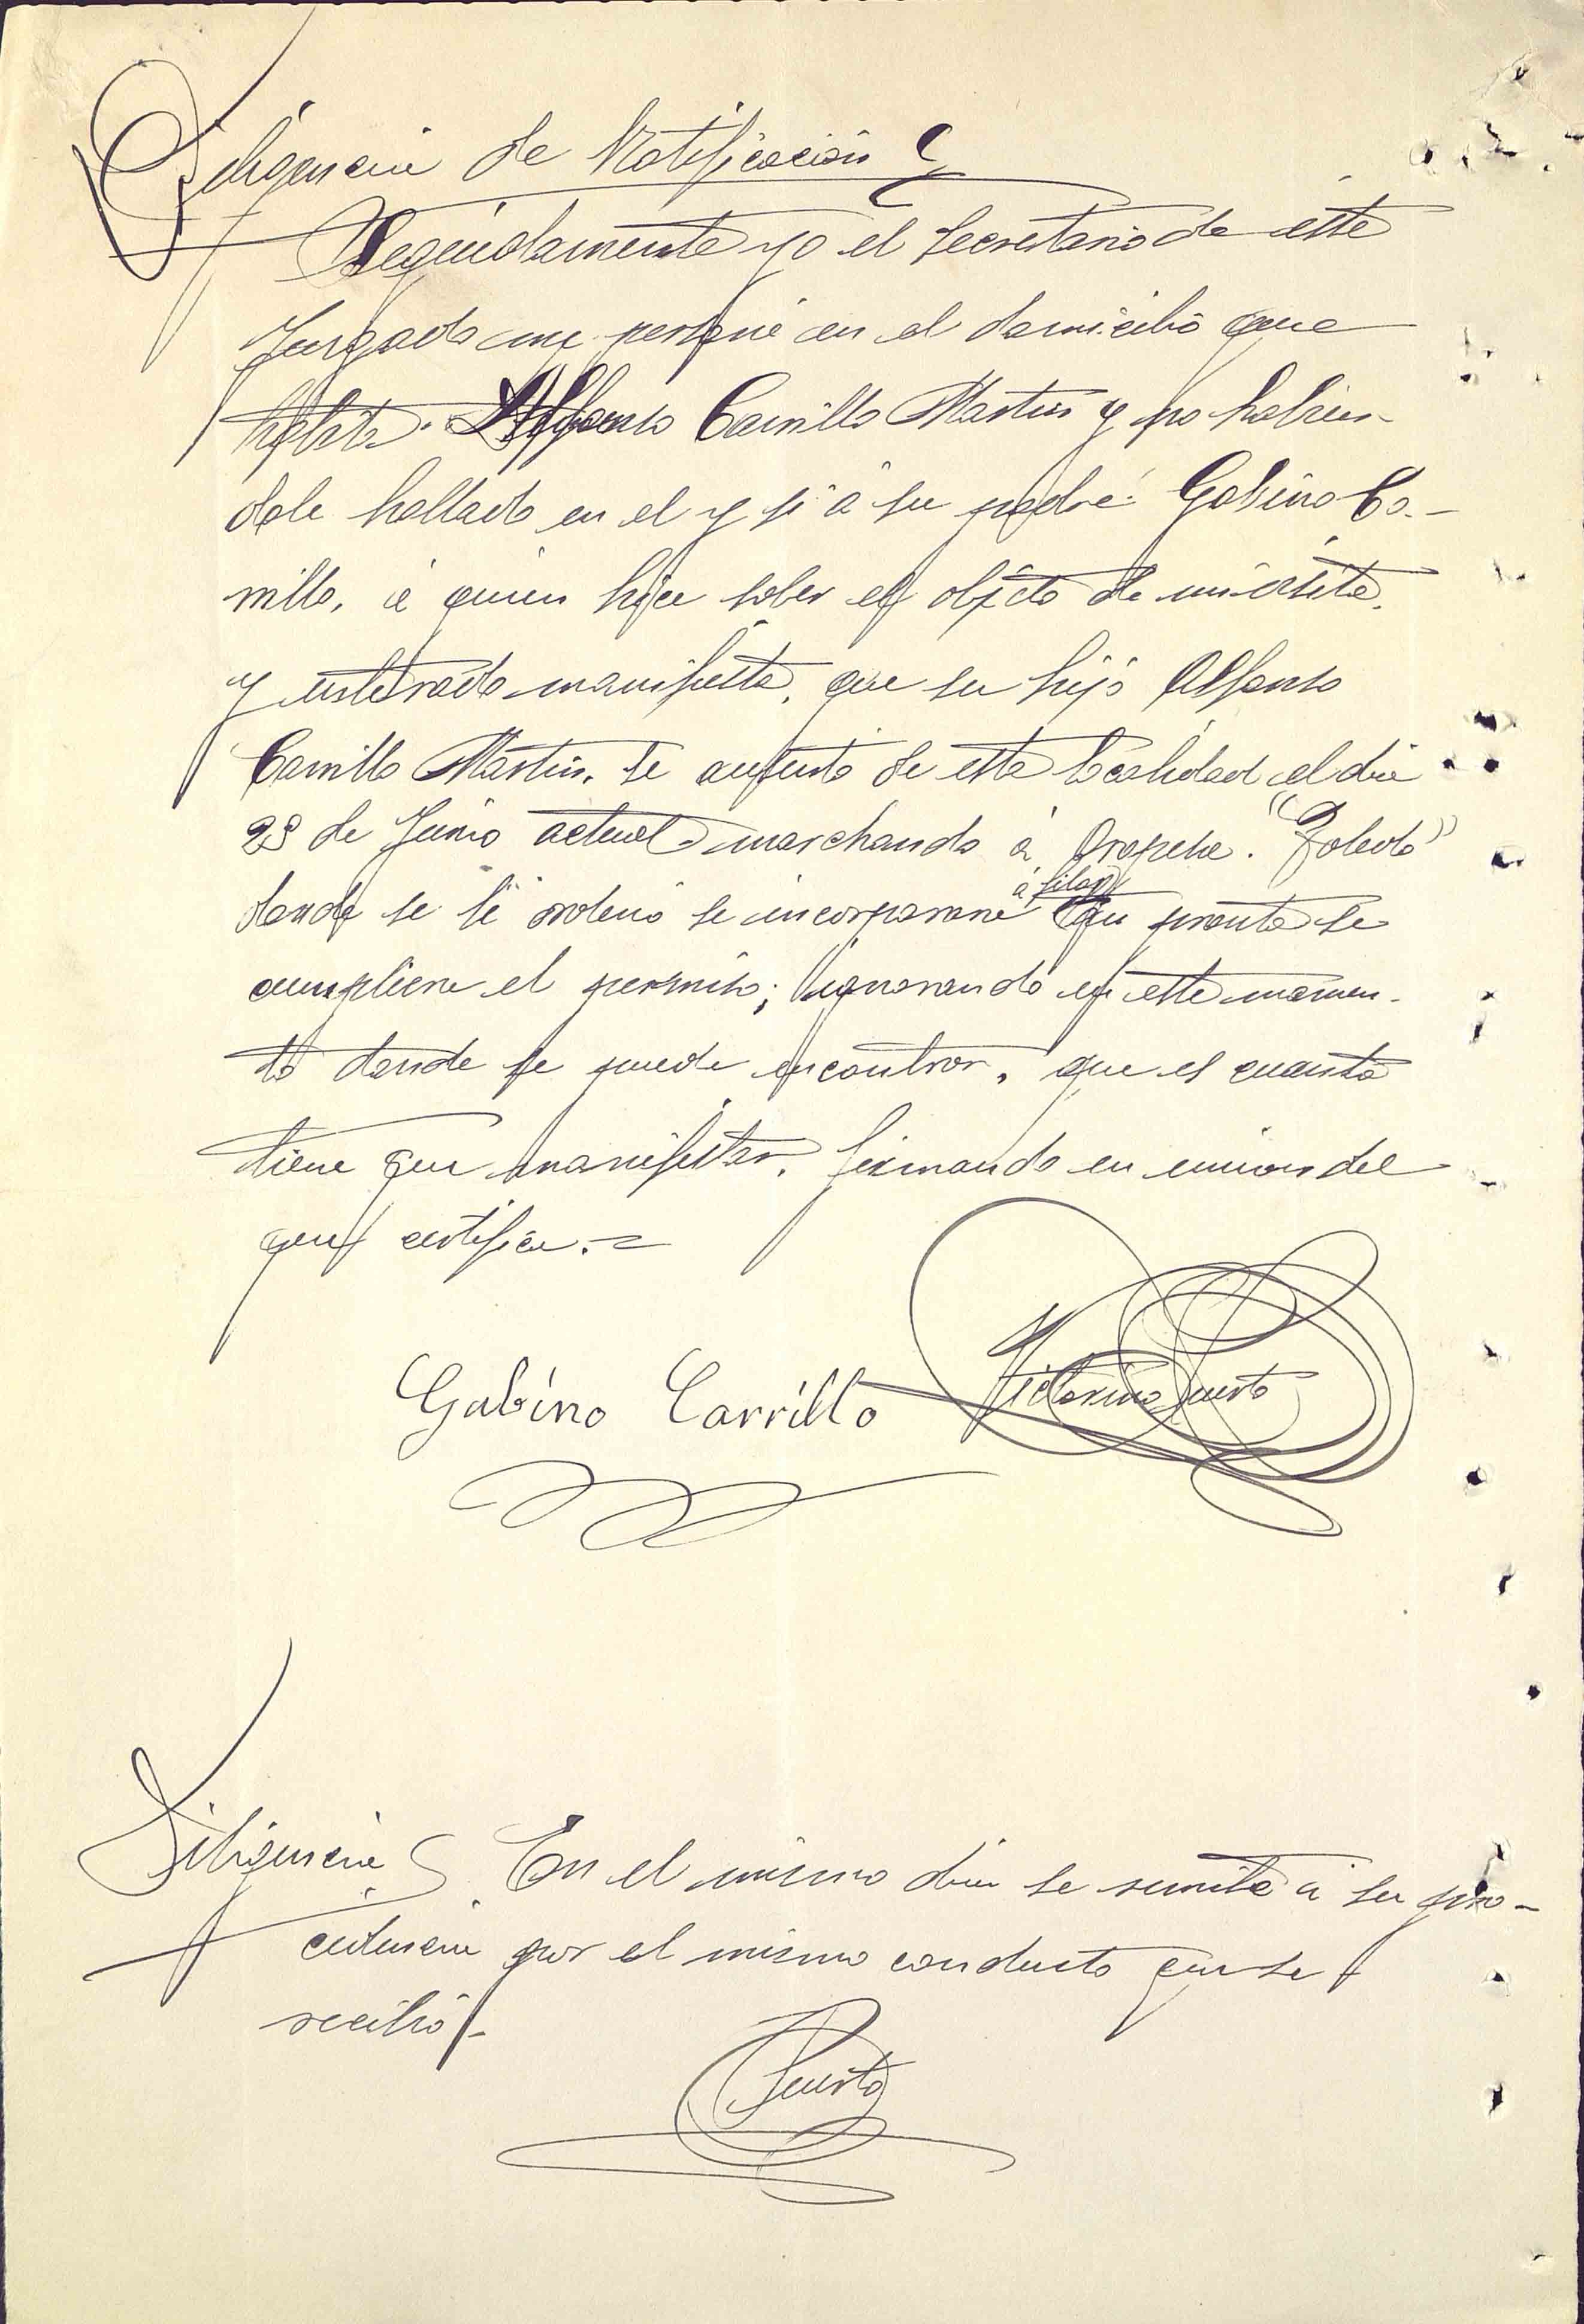 Diligencia de Notificación
Seguidamente yo el Secretario de este
Juzgado me persone en el domicilio que
habita. Alfonso Carrillo Martin y no habien-
dole hallado en el y si á su padre: Gabino Ca-
rrillo, á quien hice saber el objeto de mi visita,
y enterado manifiesta, que su hijo Alfonso
Carrillo Martin, se ausentó de esta localidad el dia
23 de Junio actual marchando á Oropesa. "Toledo"
donde se le ordenó se incorporara á filas tan pronto se
cumpliera el permiso; ignorando en este momen-
to donde se puede encontrar, que es cuanto
tiene que manifestar, firmando en union del
que certifica.=
Gabino Carrillo Victorino Puerto
Diligencia En el mismo dia se remite á su pro-
cedencia por el mismo conducto que se
recibió.-
Puerto